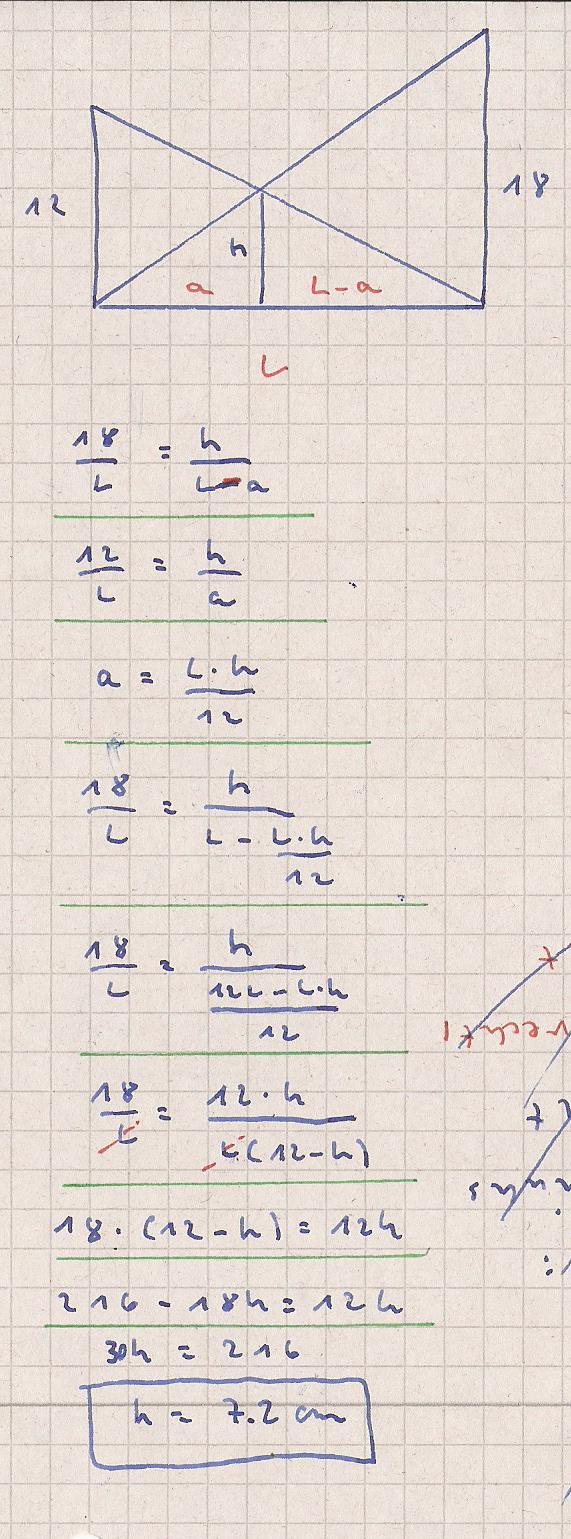 12
18
h
a
L-a
L
18/L = h/(L-a)
12/L = h/a
a = L·h/12
18/L = h/(L - L·h/12)
18/L = h/((12L-L·h)/12)
18/L = 12·h/(L(12-h))
18·(12-h) = 12h
216 - 18h = 12h
30h = 216
h = 7.2 cm